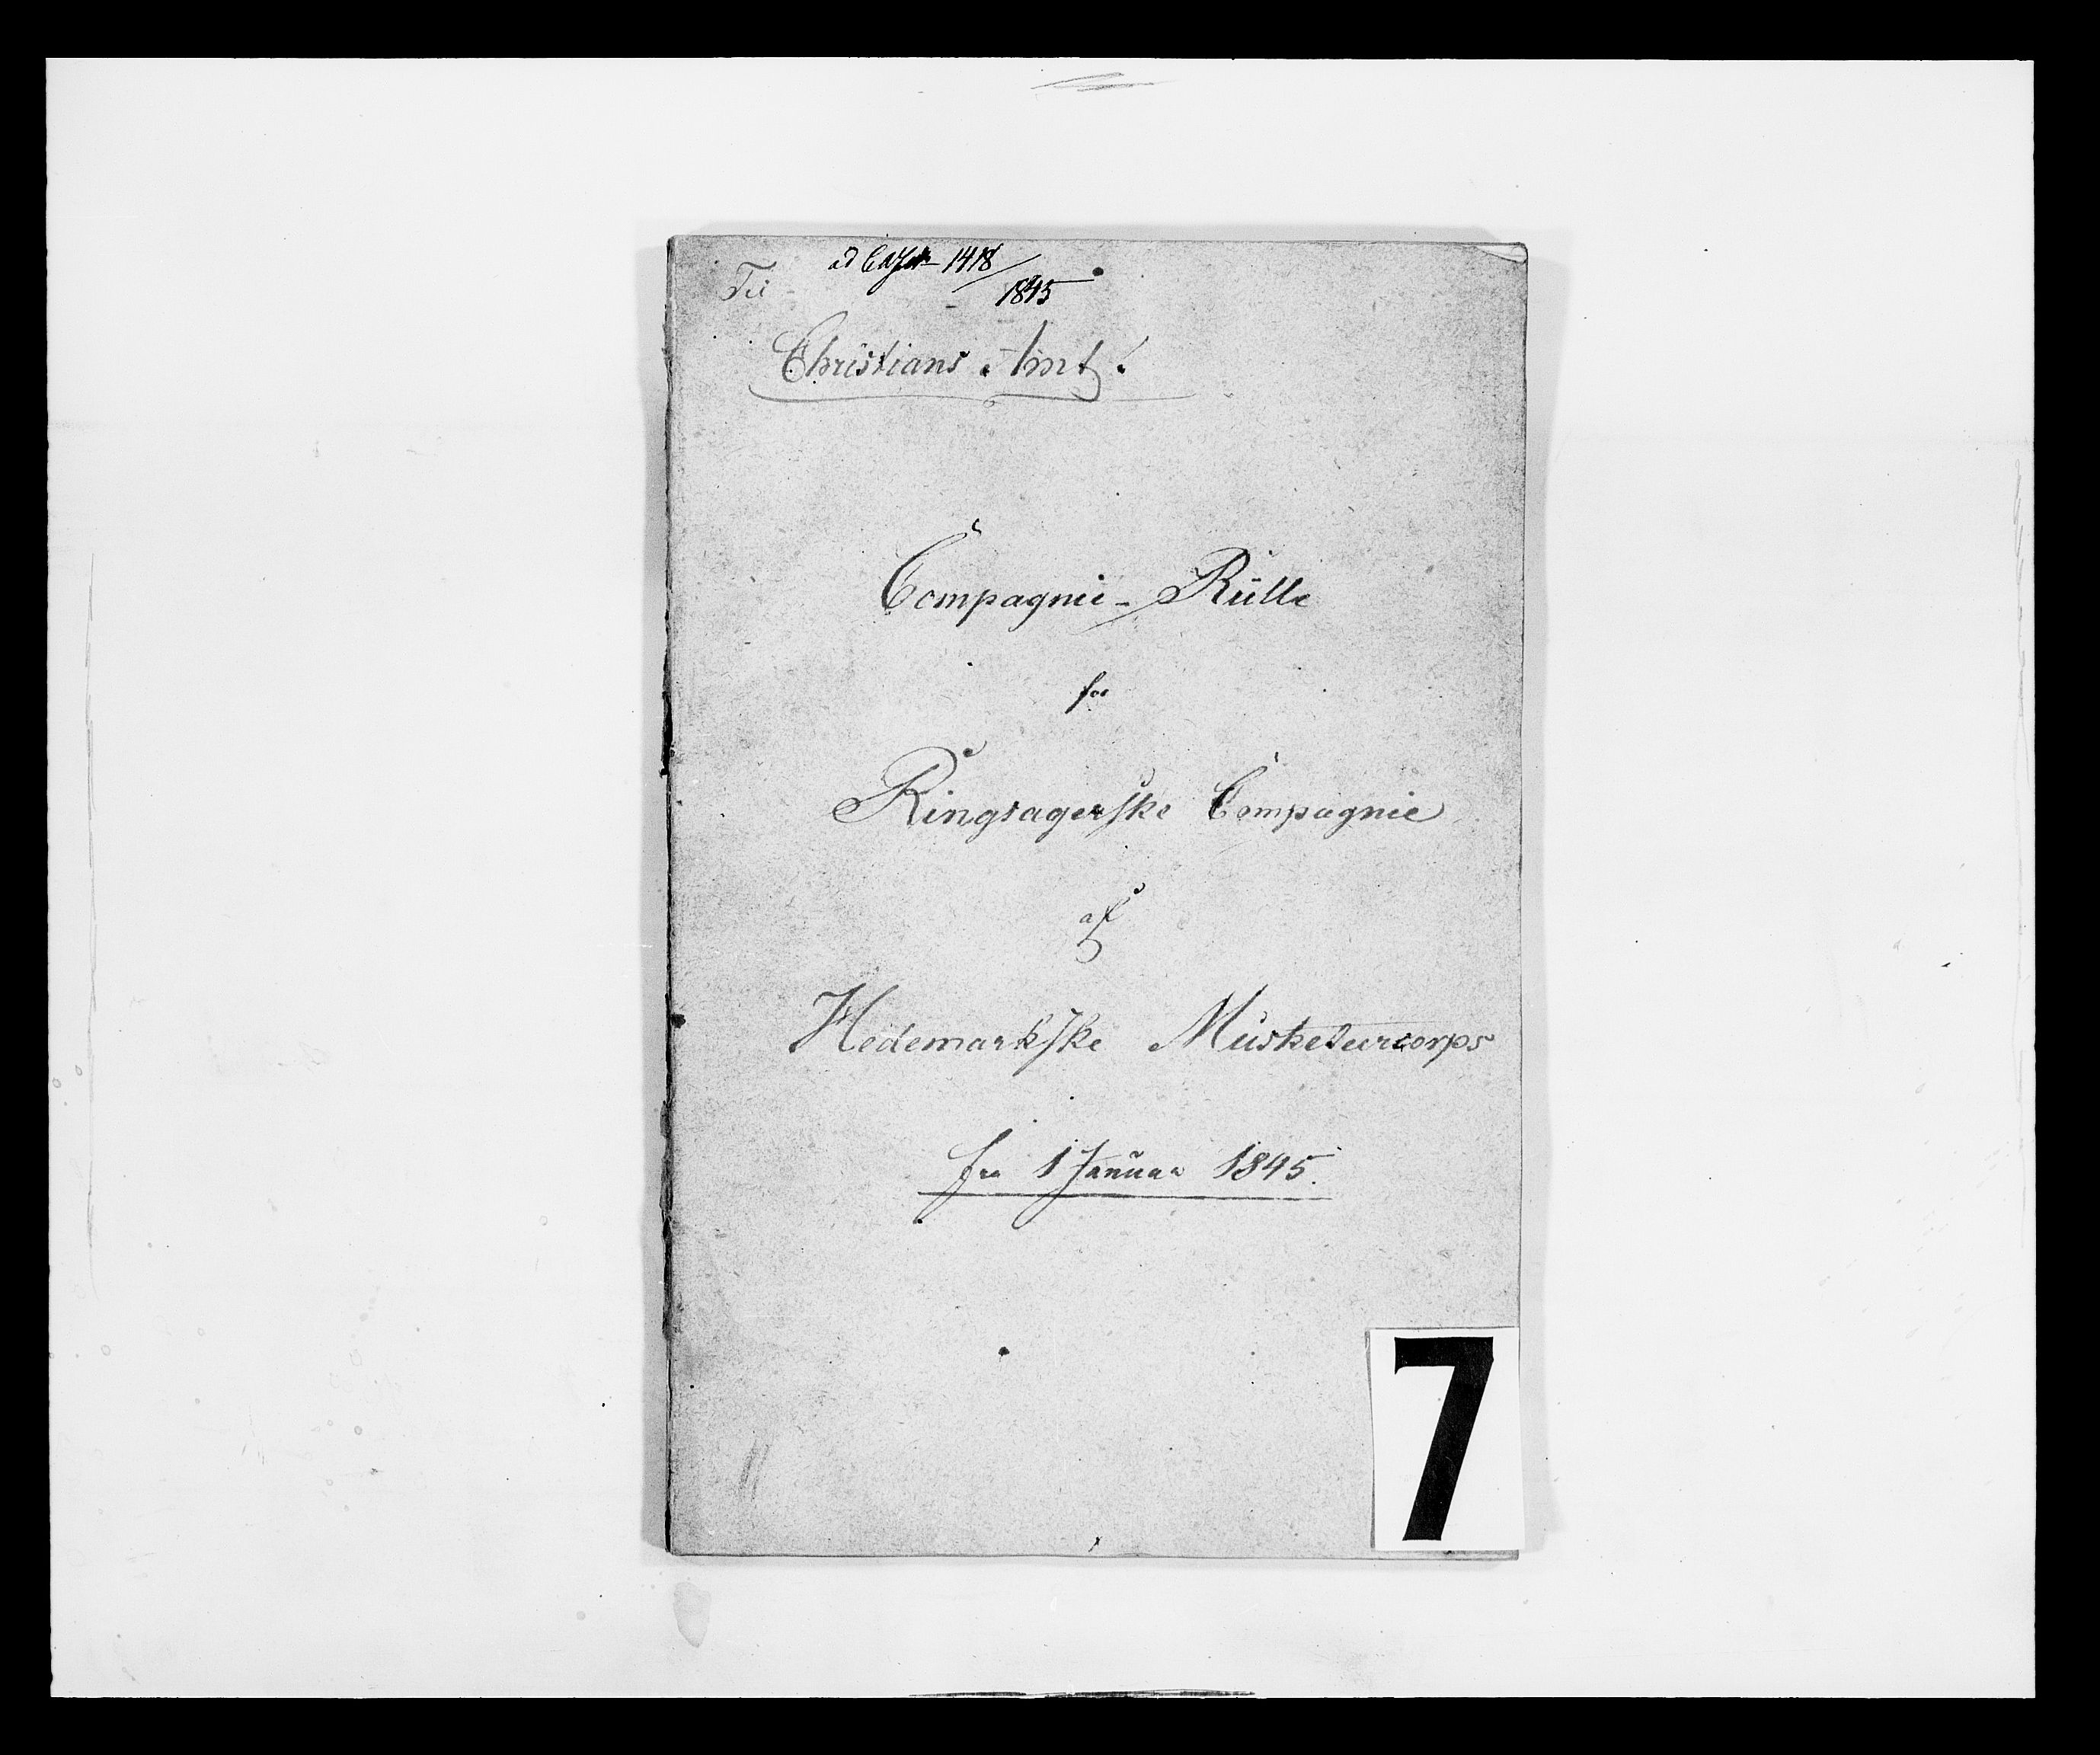 ad 1418/
1845
Til
Christians Amt.
Compagnie-Rülle
for
Ringsagerske Compagnie
af
Hedemarkske Müsketeurcorps
fra 1 Januar 1845.
7